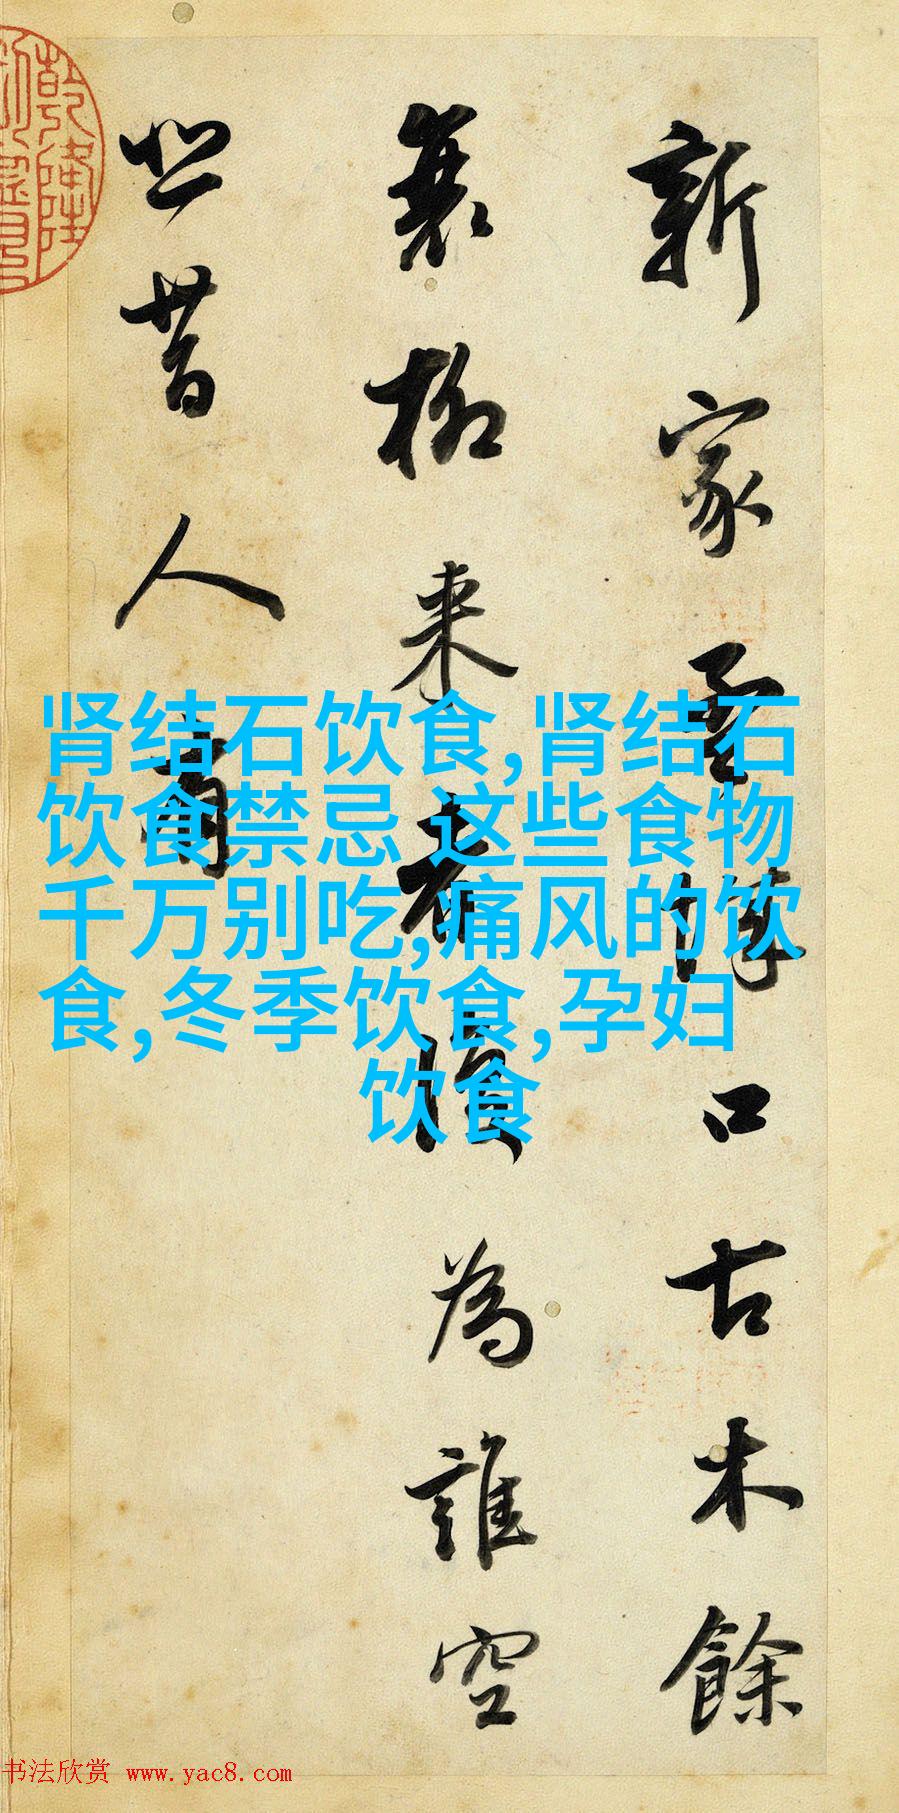 新家孟城口古木餘
衰柳来者復為誰空
悲昔人有
肾结石饮食,肾结石
饮食禁忌 这些食物
千万别吃,痛风的饮
食,冬季饮食,孕妇
饮食
乾隆
书法欣赏 www.yac8.com